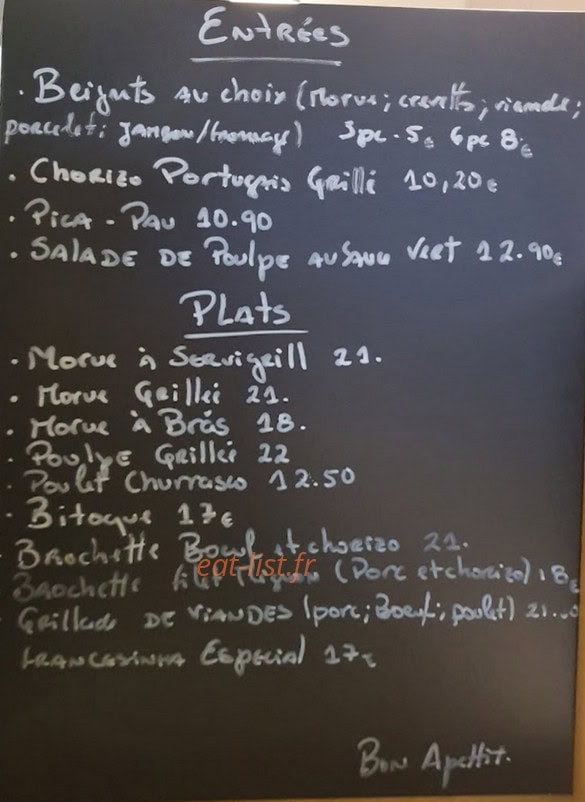 Entrées
• Beignets au choix (Morue; crevetts; viande;
porcelet; jambon/fromage) 3pc - 5€ 6pc 8€
• Chorizo Portugais Grillé 10,20€
• Pica - Pau 10.90
• Salade de Poulpe au Sauce Vert 12.90€
Plats
• Morue à Servigrill 21.
• Morue Grillée 21.
• Morue à Brás 18.
• Poulpe Grillée 22
• Poulet Churrasco 12.50
• Bitoque 17€
Brochette Boeuf et chorizo 21.
eat-list.fr
Brochette filet (Porc et chorizo) 18€
Grillade de Viandes (porc; Boeuf; poulet) 21.
Francesinha Especial 17€
Bon Apettit.